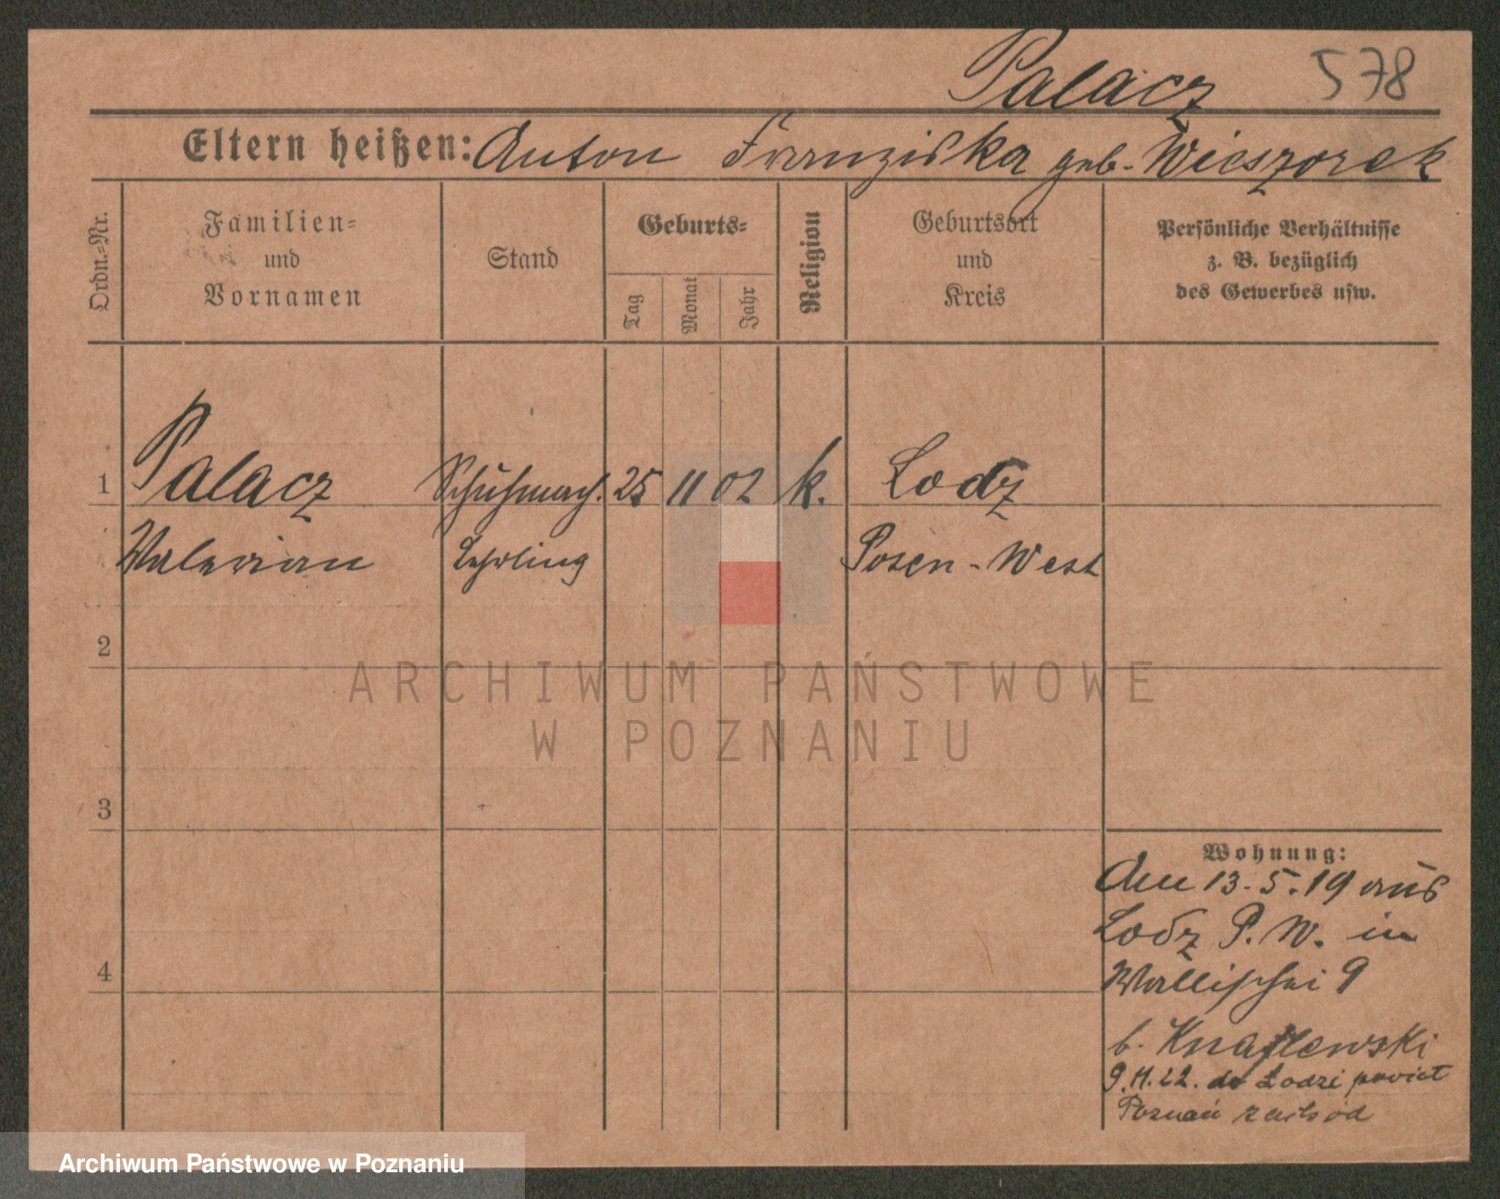 Palacz 578
Eltern heißen: Anton Franziska geb. Wieszorek
Ordn.-Nr.
Familien-
und
Vornamen
Stand
Geburts-
Tag
Monat
Jahr
Religion
Geburtsort
und
Kreis
Persönliche Verhältnisse
z. B. bezüglich
des Gewerbes usw.
1 Palacz Schuhmach. 25 11 02 k. Lodz
Valerian Lehrling Posen-West
2
ARCHIWUM PAŃSTWOWE
W POZNANIU
3
Wohnung:
Am 13.5.19 aus
Lodz P.W. in
4 Wallischei 9
b.
9.11.22. do Łodzi powiat
Poznań zachód
Archiwum Państwowe w Poznaniu